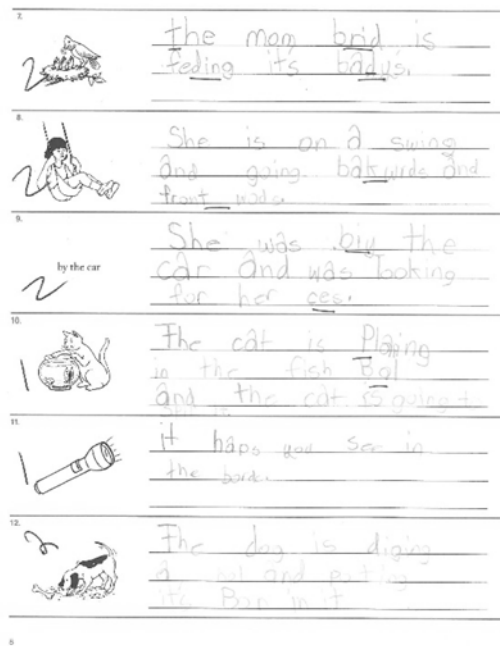 7.
the mom brid is
2
feding its badys.
8.
She is on a swing
2
and going bakwrds and
front wads.
9.
She was biy the
by the car
car and was looking
2
for her ces.
10.
The cat is Plaing
1
in the fish Bol
and the cat is going to
11.
it haps you see in
1
the bark.
12.
The dog is diging
3
a and puting
its Bon in it
6